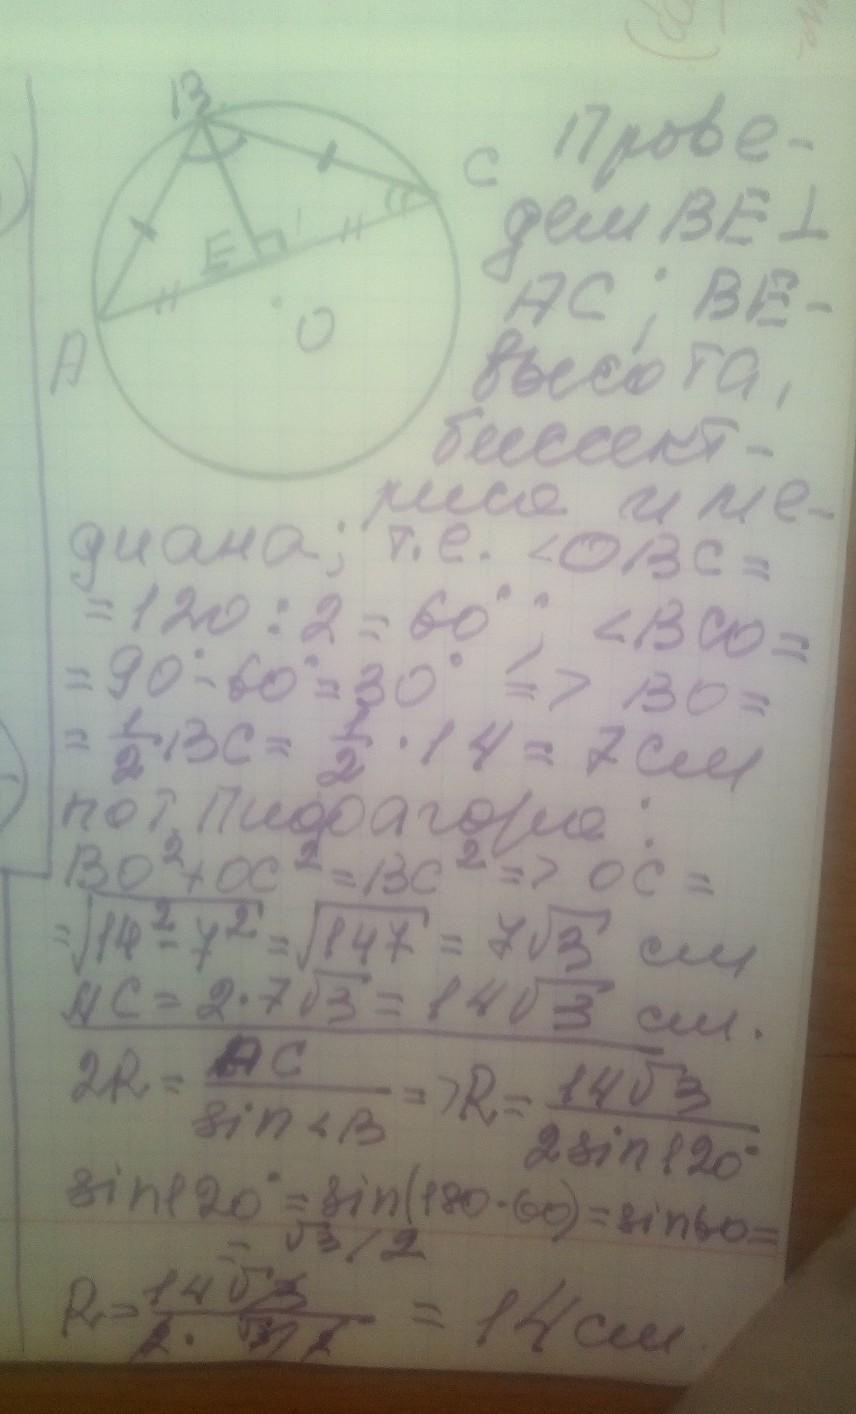 B
C
E
A
O
Прове-
дем BE⊥
AC; BE-
высота,
биссект-
риса и ме-
диана; т.е. <OBC=
=120:2=60°; <BCO=
=90°-60°=30° => BO=
=1/2 BC= 1/2 ·14=7см
по т. Пифагора:
BO²+OC²=BC² => OC=
=√14²-7²=√147=7√3 см
AC=2·7√3=14√3 см.
2R= AC/sin<B => R= 14√3/2sin120°
sin120°=sin(180-60)=sin60=
= √3/2
R= 14√3/2·√3/2 = 14см.